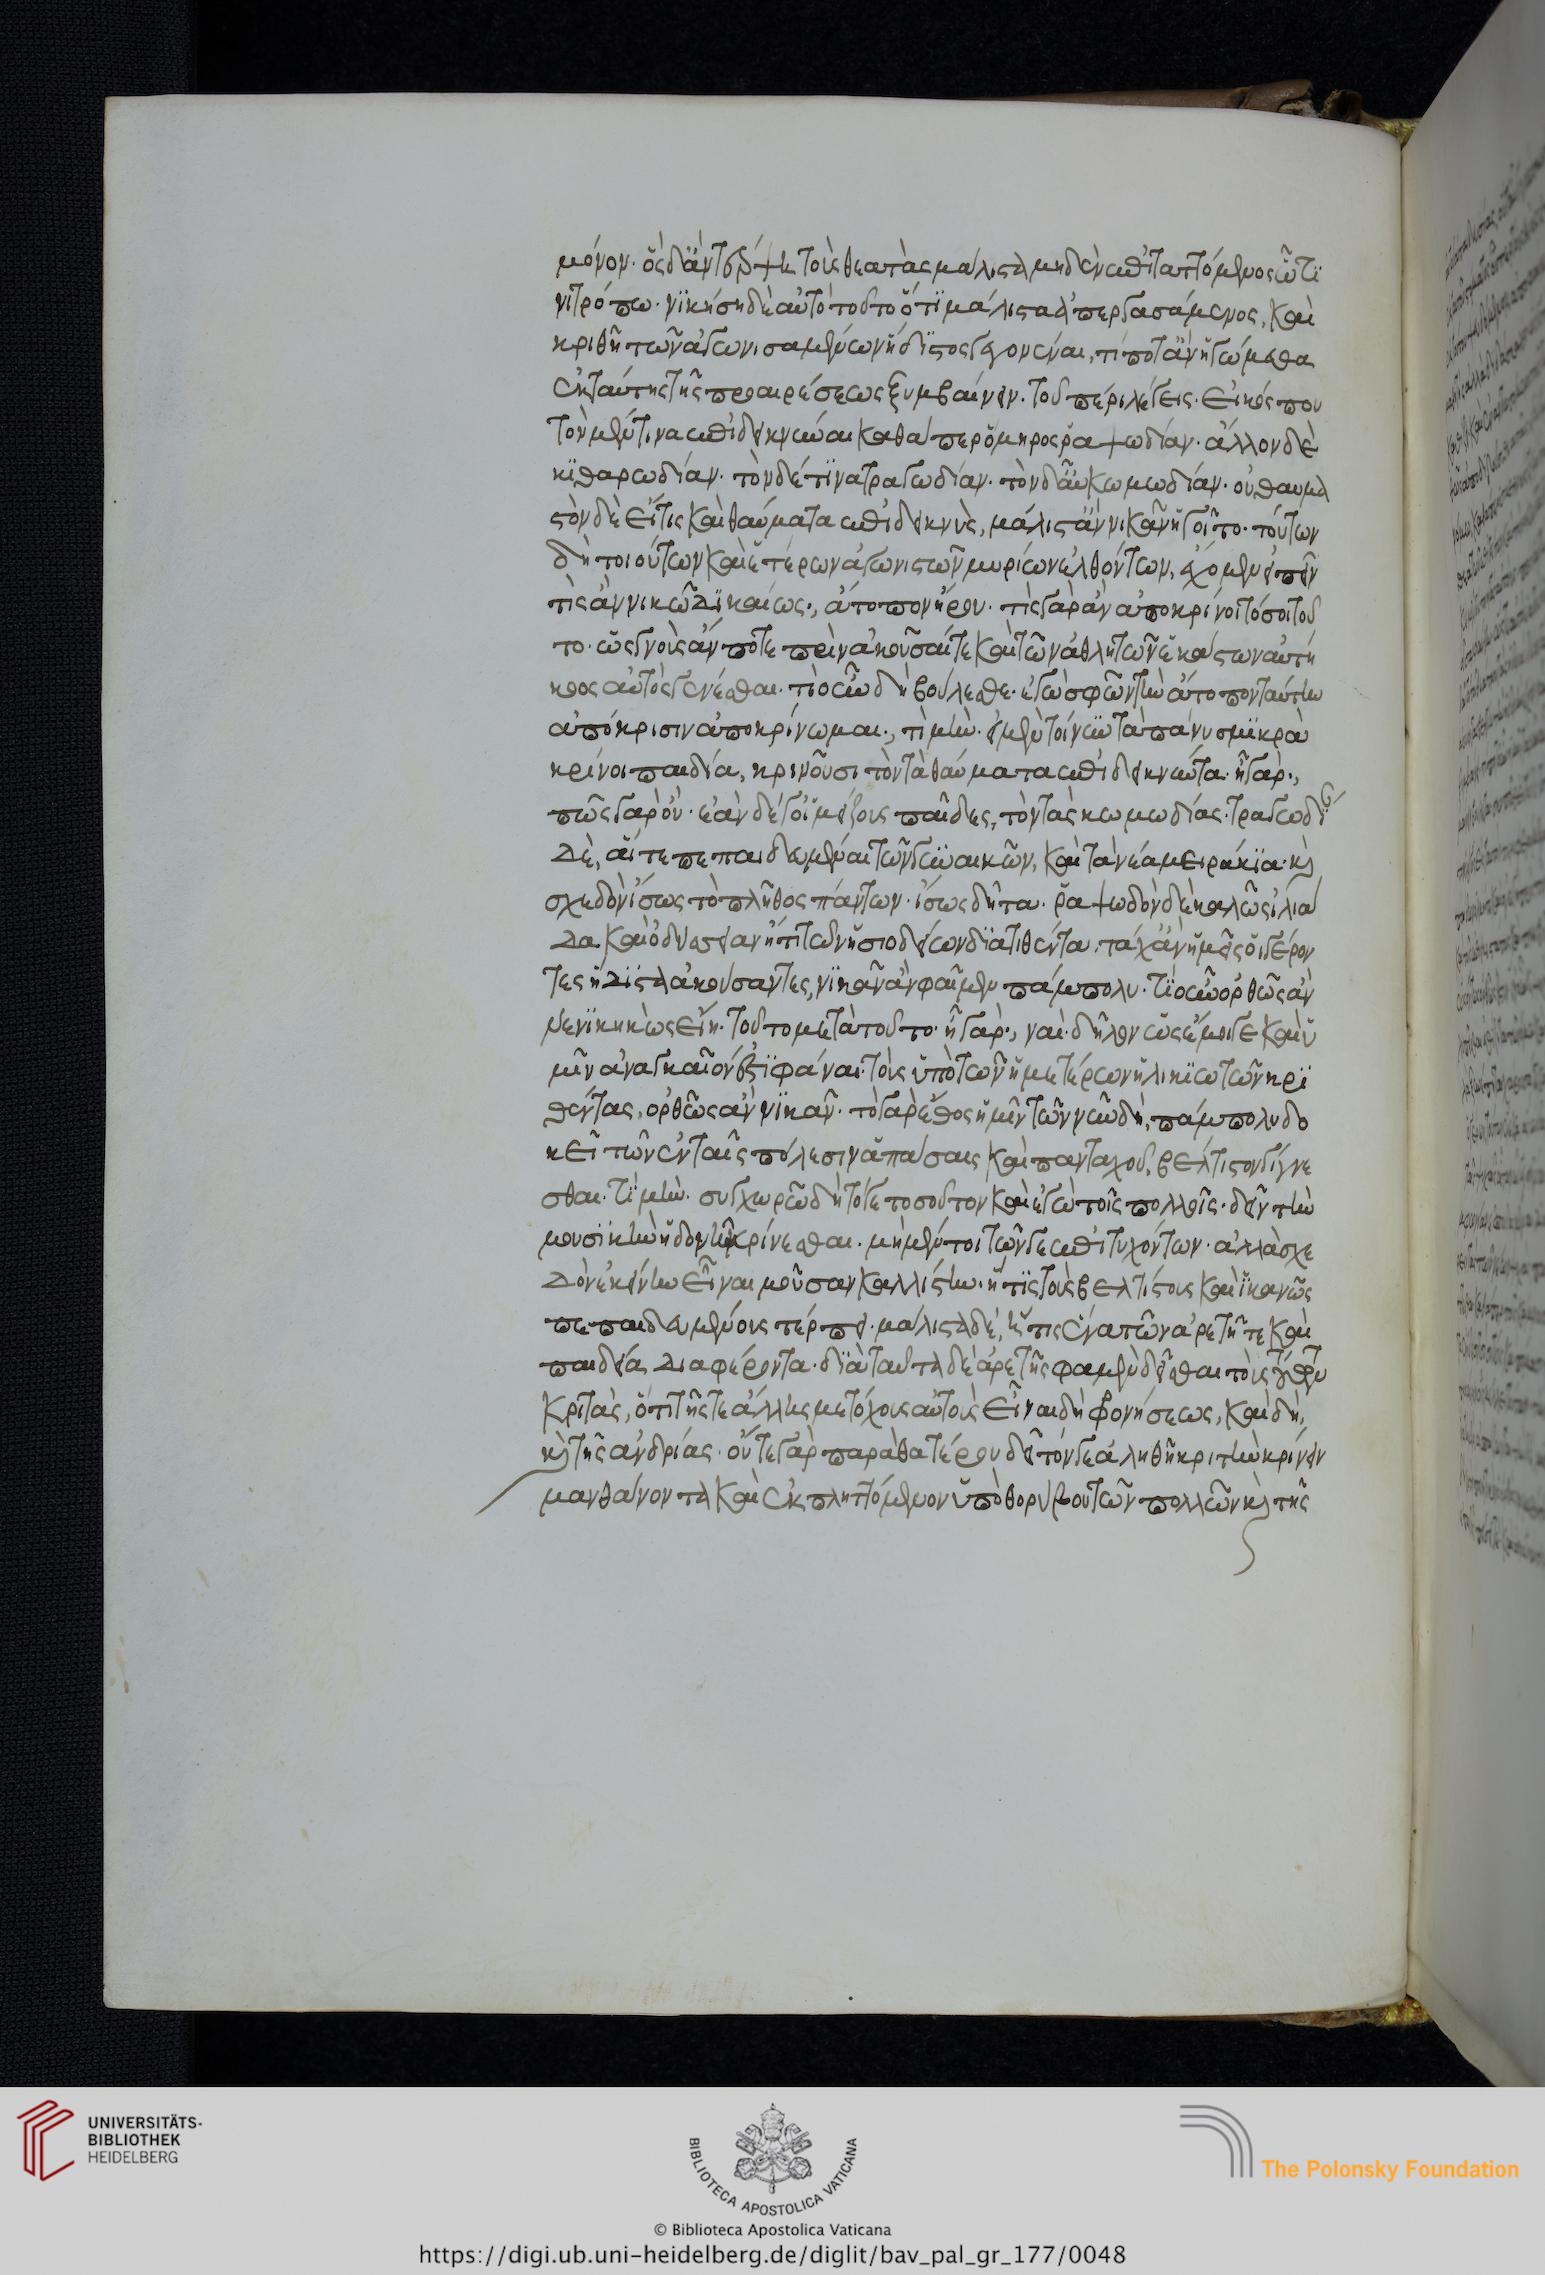 μόνον· ὃς δ' ἂν τέρψῃ τοὺς θεατὰς μάλιστα μηδὲν ἐπιταττόμενος ὧτϊ
νι τρόπω· νϊκήσῃ δὲ αὐτὸ τοῦτο ὅτϊ μάλιστα ἀπεργασάμενος, καὶ
κριθῆ τῶν ἀγωνισαμένων ἥδϊστος γεγονέναι, τί ποτ' ἂν ἡγώμεθα
ἐκ ταύτης τῆς προαιρέσεως ξυμβαίνειν. τοῦ πέρι λέγεις. εἰκός που
τὸν μέν τινα ἐπιδεικνύναι καθάπερ ὅμηρος ῥαψωδίαν· ἄλλον δὲ
κϊθαρωδίαν· τὸν δέ τϊνα τραγωδίαν· τὸν δ' αὖ κωμωδίαν· οὐ θαυμα
στὸν δὲ εἴ τις καὶ θαύματα ἐπιδεικνὺς, μάλιστ' ἂν νικᾶν ἡγοῖτο· τούτων
δὴ τοιούτων καὶ ἑτέρων ἀγωνιστῶν μυρίων ἐλθόντων, ἔχομεν εἰπεῖν
τὶς ἂν νικῶ δϊκαίως., ἄτοπον ἤρου· τὶς γὰρ ἂν ἀποκρίνοιτό σοι τοῦ
το· ὡς γνοὺς ἄν ποτε πρὶν ἀκοῦσαί τε καὶ τῶν ἀθλητῶν ἑκάστων αὐτή
κοος αὐτὸς γενέσθαι· τί οὖν δὴ βούλεσθε· ἐγὼ σφῶν τὴν ἄτοπον ταύτην
ἀπόκρισιν ἀποκρίνωμαι., τὶ μήν· εἰ μὲν τοίνυν τὰ πάνυ σμϊκρὰ
κρίνοι παιδία, κρινοῦσι τὸν τὰ θαύματα ἐπιδεικνύντα· ἦ γάρ.,
πῶς γὰρ οὔ· ἐὰν δέ γ' οἱ μείζους παῖδες, τὸν τὰς κωμωδίας· τραγωδί
δὲ, αἵ τε πεπαιδευμέναι τῶν γυναικῶν, καὶ τὰ νέα μειράκϊα· κὶ
σχεδὸν ἴσως τὸ πλῆθος πάντων· ἴσως δῆτα· ῥαψωδὸν δὲ καλῶς ἰλιά
δα καὶ ὀδύσσειαν ἤ τι τῶν ἡσιοδείων δϊατιθέντα, τάχ' ἂν ἡμεῖς οἱ γέρον
τες ἥδϊστα ἀκούσαντες, νϊκᾶν ἂν φαῖμεν πάμπολυ· τίς οὖν ὀρθῶς ἂν
νενϊκηκὼς εἴη· τοῦτο μετὰ τοῦτο· ἦ γάρ., ναί· δῆλον ὡς ἔμοιγε καὶ ὑ
μῖν ἀναγκαῖόν ἐστϊ φάναι· τοὺς ὑπὸ τῶν ἡμετέρων ἡλικϊωτῶν κρϊ
θέντας, ὀρθῶς ἂν νϊκᾶν· τὸ γὰρ ἔθος ἡμῖν τῶν νῦν δὴ, πάμπολυ δο
κεῖ τῶν ἐν ταῖς πόλεσιν ἁπάσαις καὶ πανταχοῦ, βέλτιστον γίγνε
σθαι· τί μήν· συγχωρῶ δὴ τό γε τοσοῦτον καὶ ἐγὼ τοῖς πολλοῖς· δεῖν τὴν
μουσϊκὴν ἡδονῆ κρίνεσθαι· μὴ μέν τοι τῶν γε ἐπιτυχόντων· ἀλλὰ σχε
δὸν ἐκείνην εἶναι μοῦσαν καλλίστην· ἥ τϊς τοὺς βελτίστους καὶ ἱκανῶς
πεπαιδευμένους τέρπει· μάλιστα δέ, ἥ τις ἕνα τῶν ἀρετῆ τε καὶ
παιδεία διαφέροντα· δϊὰ ταῦτα δὲ ἀρετῆς φαμὲν δεῖσθαι τοὺς τούτων
κριτὰς, ὅτι τῆς τε ἄλλης μετόχους αὐτοὺς εἶναι δὴ φρονήσεως, καὶ δὴ,
κὶ τῆς ἀνδρίας· οὔτε γὰρ παρὰ θατέρου δεῖ τόν γε ἀληθῆ κριτὴν κρίνειν
μανθάνοντα καὶ ἐκπληττόμενον ὑπὸ θορύβου τῶν πολλῶν κὶ τῆς
UNIVERSITÄTS-
BIBLIOTHEK
HEIDELBERG
BIBLIOTECA APOSTOLICA VATICANA
The Polonsky Foundation
© Biblioteca Apostolica Vaticana
https://digi.ub.uni-heidelberg.de/diglit/bav_pal_gr_177/0048